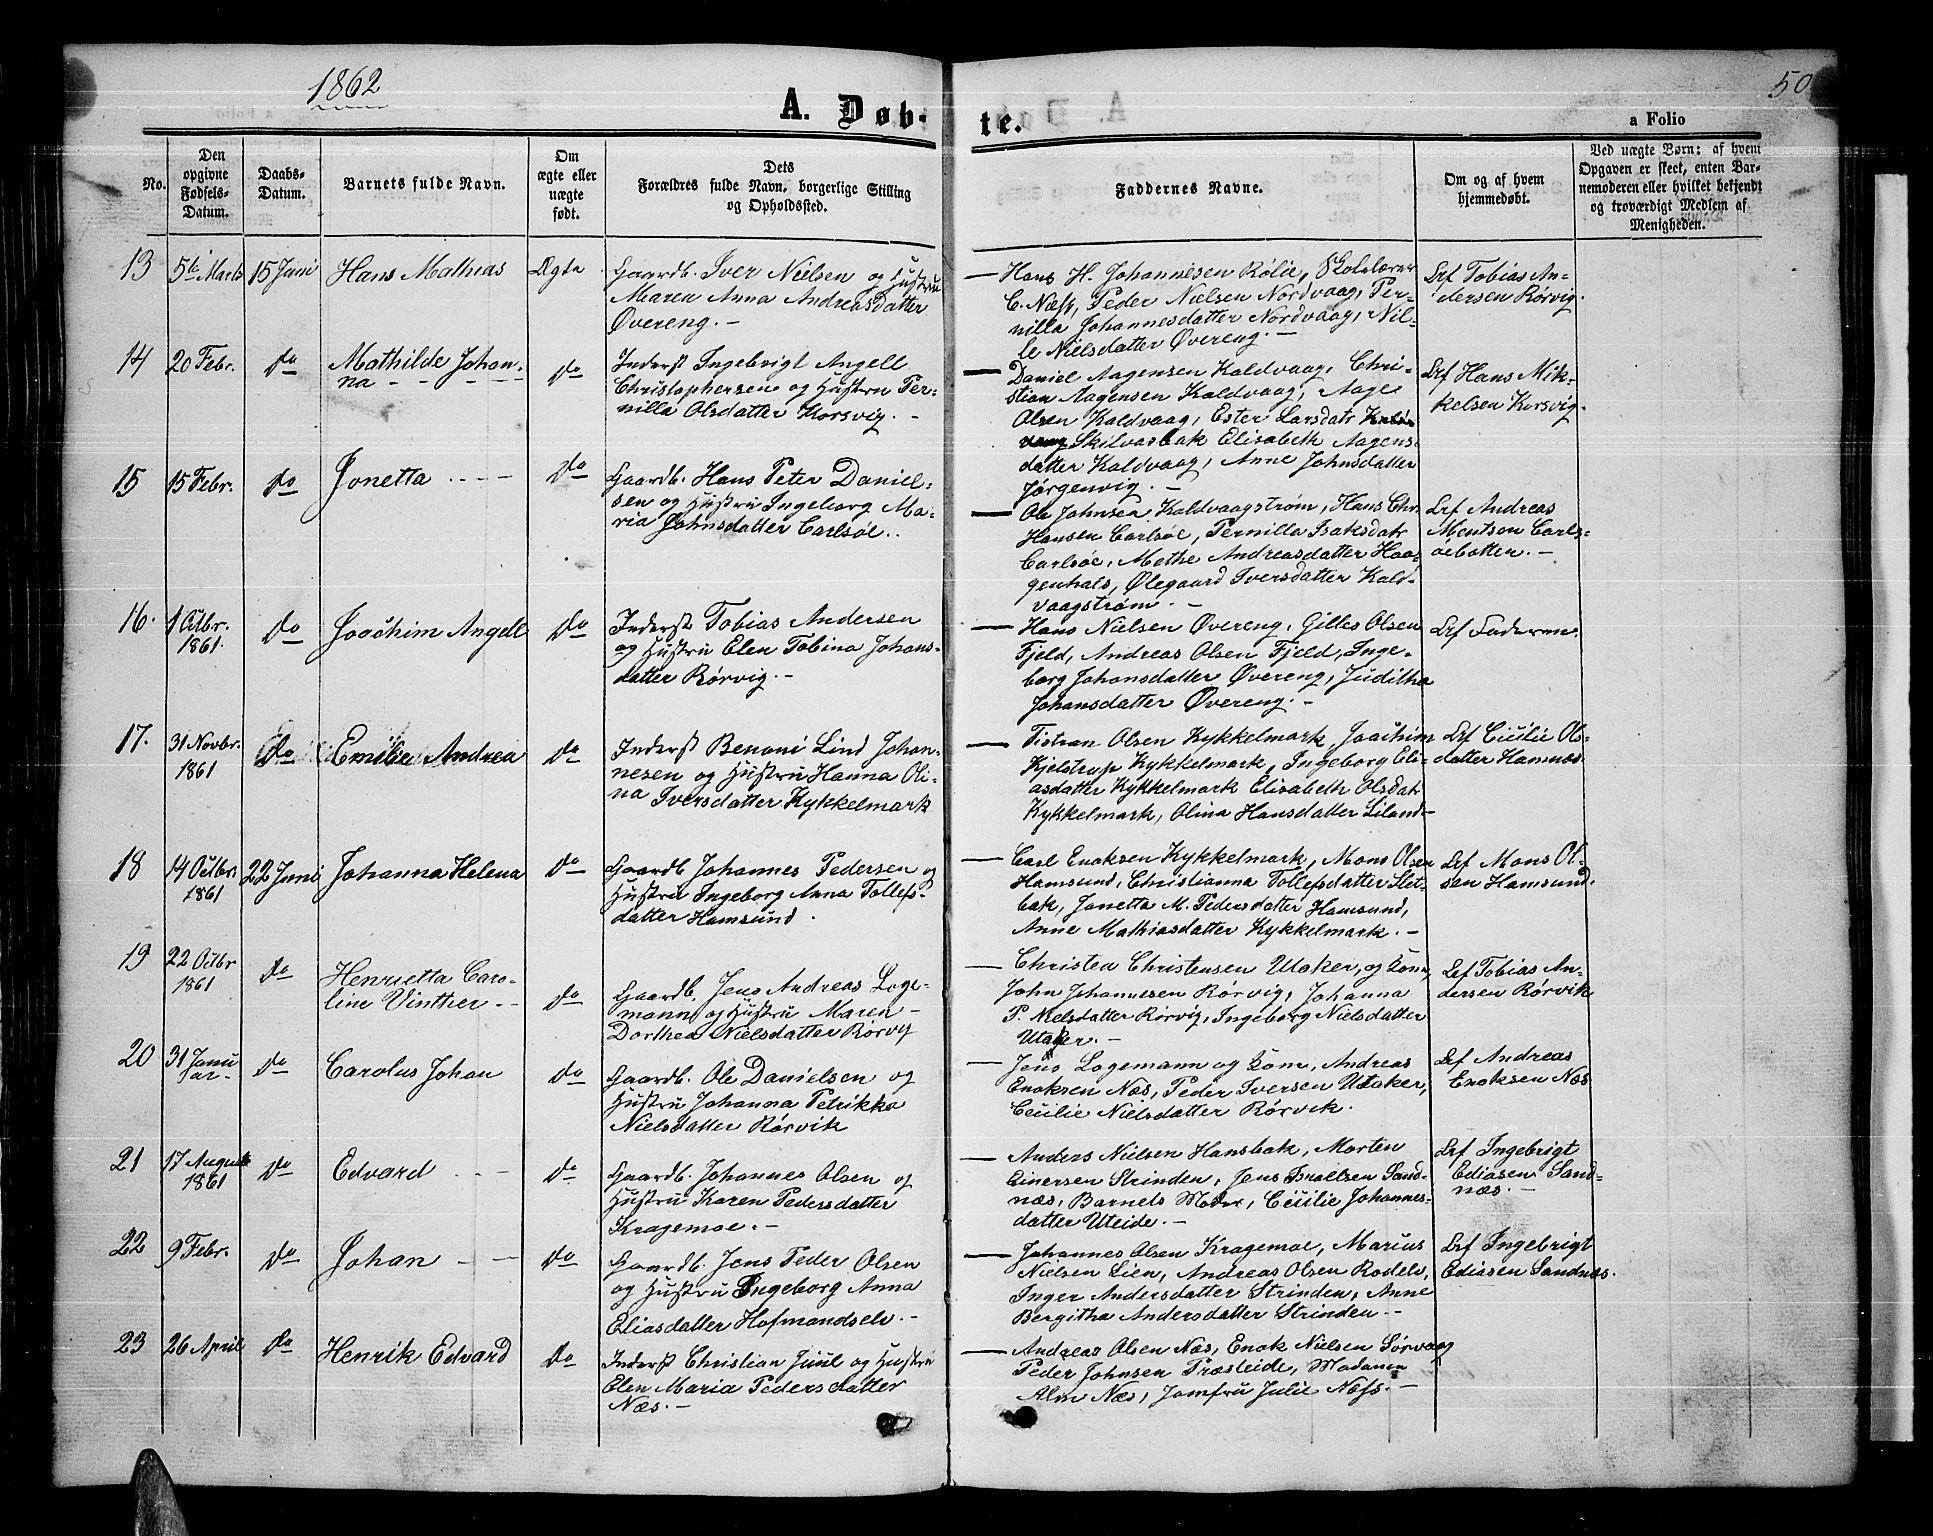 1862
50
A. Døb-
te.
a Folio
No.
Den
opgivne
Fødsels-
Datum.
Daabs-
Datum.
Barnets fulde Navn.
Om
ægte eller
uægte
født.
Dets
Forældres fulde Navn, borgerlige Stilling
og Opholdssted.
Faddernes Navne.
Om og af hvem
hjemmedøbt.
Ved uægte Børn: af hvem
Opgaven er skeet, enten Bar-
nemoderen eller hvilket bekjendt
og troværdigt Medlem af
Menigheden.
13
5te Marts
15 Juni
Hans Mathias
Ægte
Gaardb. Iver Nielsen og Hustru
Maren Anna Andreasdatter
Øvereng. -
Hans H. Johannesen Rølie, Skolelærer
C. Næss, Peder Nielsen Nordvaag, Per-
nilla Johannesdatter Nordvaag, Nil-
le Nielsdatter Øvereng. -
Lrf Tobias An-
dersen Rørvig.
14
20 Febr.
do
Mathilde Johan-
na
do
Inderst Ingebrigt Angell
Christophersen og Hustru Per-
nilla Olsdatter Korsvig. -
Daniel Aagensen Kaldvaag, Chri-
stian Aagensen Kaldvaag, Aage
Olsen Kaldvaag, Ester Larsdatr
Skilvasbak Elisabeth Aagens-
datter Kaldvaag, Anne Johnsdatter
Jørgenvig. -
Lrf Hans Mik-
kelsen Korsvig.
15
15 Febr.
do
Jonetta
do
Gaardb. Hans Peter Daniel-
sen og Hustru Ingeborg Ma-
ria Johnsdatter Carlsøe.
Ole Johnsen Kaldvaagstrøm, Hans Chr.
Hansen Carlsøe, Pernilla Isaksdatr
Carlsøe, Methe Andreasdatter Haa-
genhals, Ølegaard Iversdatter Kald-
vaagstrøm. -
Lrf Andreas
Mentsen Carls-
øebotten. -
16.
1 Octbr.
1861.
do
Joachim Angell
do
Inderst Tobias Andersen
og Hustru Elen Tobina Johans-
datter Rørvig. -
Hans Nielsen Øvereng, Gilles Olsen
Fjeld, Andreas Olsen Fjeld, Inge-
borg Johansdatter Øvereng, Juditha
Johansdatter Øvereng. -
Lrf Faderen.
17.
31 Novbr.
1861
do
Emilie Andrea
do
Inderst Benoni Lind Johan-
nesen og Hustru Hanna Oli-
na Iversdatter Kykkelmark
Tistran Olsen Kykkelmark, Joachim
Kjelstrup Kykkelmark, Ingeborg Eli-
asdatter Kykkelmark Elisabeth Olsdatr
Kykkelmark, Olina Hansdatter Liland -
Lrf Cicilie Ols-
datter Hamnæs
18
14 Octbr.
1861
22 Juni
Johanna Helena
do
Gaardb Johannes Pedersen og
Hustru Ingeborg Anna Tollefs-
datter Hamsund.
Carl Enoksen Kykkelmark, Mons Olsen
Hamsund, Christianna Tollefsdatter Slet-
bak, Janetta M. Pedersdatter Hamsund,
Anne Mathiasdatter Kykkelmark. -
Lrf Mons Ol-
sen Hamsund.
19
22 Octbr
1861
do
Henrietta Caro-
line Vinther
do
Gaardb. Jens Andreas Loge-
mann og Hustru Maren
Dorthea Nielsdatter Rørvig
Christen Christensen Utaker, og Kone,
John Johannesen Rørvig, Johanna
P. Nielsdatter Rørvig, Ingeborg Nielsdatter
Utaker. -
Lrf Tobias An-
dersen Rørvik
20
31 Janu
ar
do
Carolus Johan
do
Gaardb. Ole Danielsen og
Hustru Johanna Petrikka
Nielsdatter Rørvik
Jens Logemann og Kone, Andreas
Enoksen Næs, Peder Iversen Utaker,
Cecilie Nielsdatter Rørvik.
Lrf Andreas
Enoksen Næs
21
17 August
1861
do
Edvard
do
Gaardb. Johannes Olsen og
Hustru Karen Pedersdatter
Kragemoe. -
Anders Nielsen Hansbak, Morten
Einersen Strinden, Jens Israelsen Sand-
næs, Barnets Moder, Cecilie Johannes-
datter Uteide. -
Lrf Ingebrigt
Ediasen Sand-
næs. -
22
9 Febr.
do
Johan
do
Gaardb. Jens Peder Olsen
og Hustru Ingeborg Anna
Eliasdatter Hofmandselv. -
Johannes Olsen Kragemoe, Marius
Nielsen Lien, Andreas Olsen Rodelv,
Inger Andersdatter Strinden, Anne
Bergitha Andersdatter Strinden. -
Lrf Ingebrigt
Ediasen Sandnæs.
23
26 April
do
Henrik Edvard
do
Inderst Christian Juul og Hustru
Elen Maria Pedersdatter
Næs. -
Andreas Olsen Næs, Enok Nielsen Sørvaag
Peder Johnsen Præsteide, Madamen
Alm Næs, Jomfru Julie Næss. -